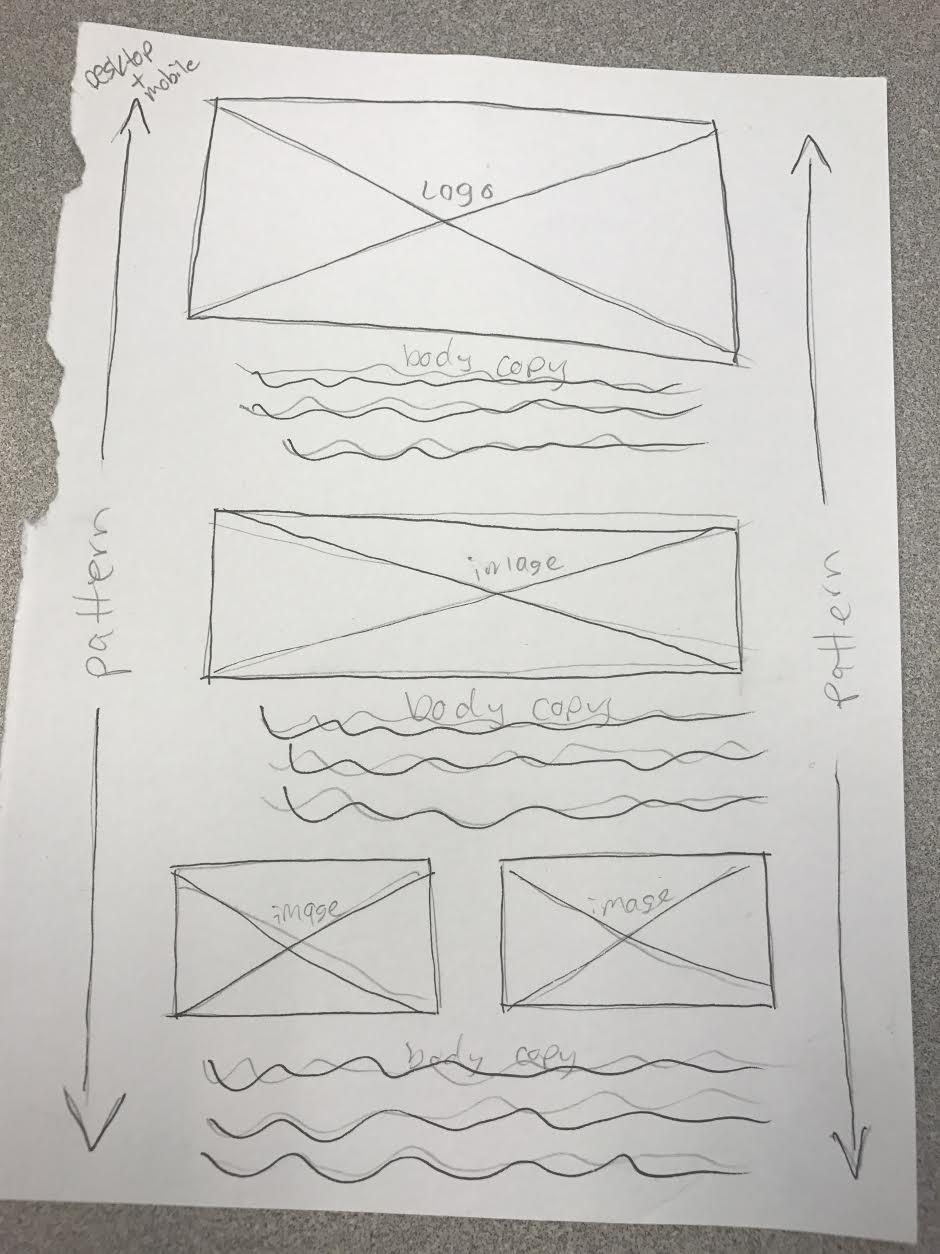 Desktop
+
mobile
Logo
body copy
pattern
pattern
image
body copy
image
image
body copy